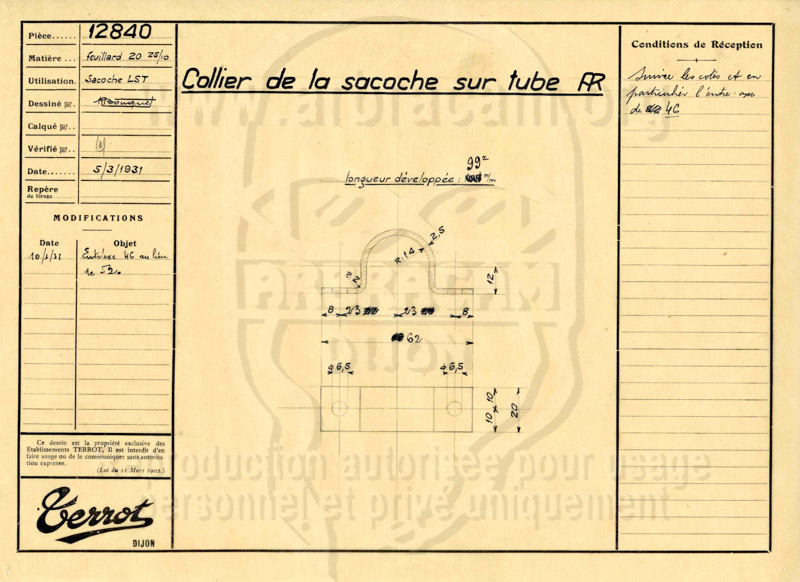 Pièce...... 12840
Matière ... feuillard 20 25/10
Utilisation. Sacoche LST
Dessiné par.
Calqué par..
Vérifié par..
Date....... 5/3/1931
Repère
de tirage
MODIFICATIONS
Date Objet
10/3/31 Entr'axe 46 au lieu
de 52.
Ce dessin est la propriété exclusive des
Etablissements TERROT, Il est interdit d'en
faire usage ou de le communiquer sans autorisa
tion expresse.
(Loi du 11 Mars 1902.)
Terrot
DIJON
Collier de la sacoche sur tube AR
longueur développée : 99 m/m
R.14
2,5
R.2
12
8 23 23 8
62
φ6,5 φ6,5
10 x 10
20
Conditions de Réception
Suivre les cotes et en
particulier l'entre-axe
de 46
www.areracam.org
ARERACAM
DIJON
reproduction autorisée pour usage
personnel et privé uniquement